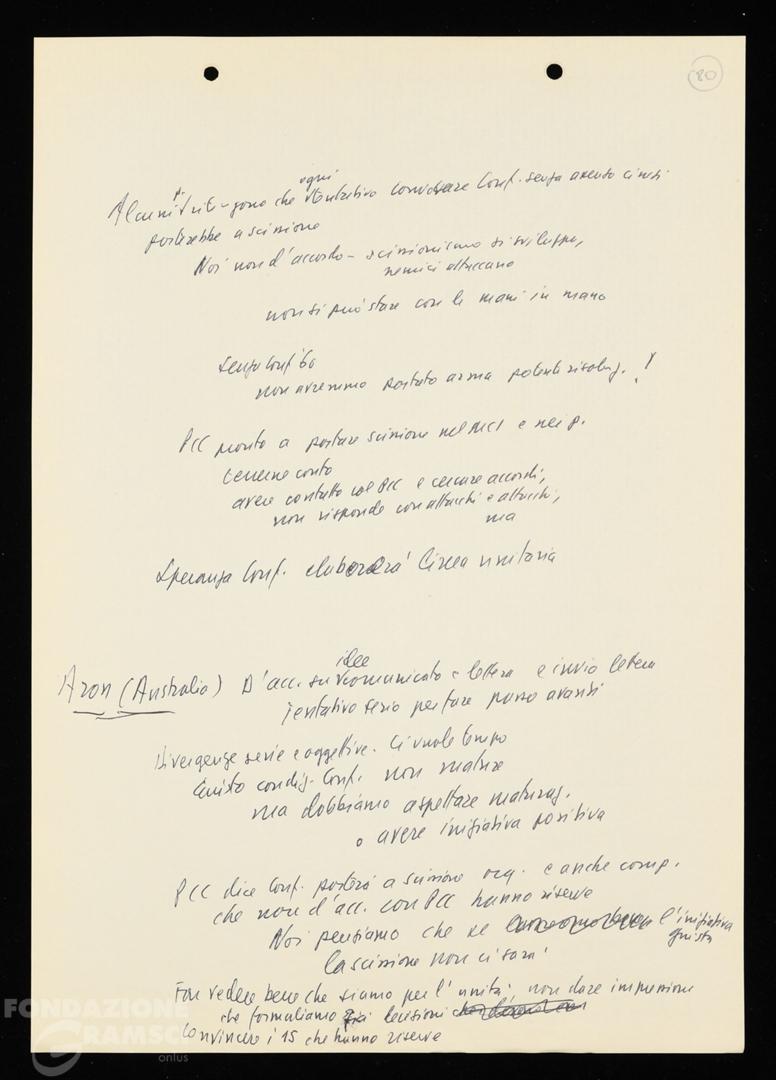 80
Alcuni p. riten-gono che ogni tentativo convocare Conf. senza accordo cinesi
porterebbe a scissione
Noi non d'accordo - scissionismo si sviluppa,
nemici attaccano
non si può stare con le mani in mano
Senza Conf 60
non avremmo portato arma potente risoluz. !
PCC pronto a portare scissione nel MCI e nei p.
tenerne conto
avere contatto col PCC e cercare accordi,
non risponde con attacchi e attacchi,
ma
Speranza Conf. elaborerà linea unitaria
Aron (Australia) D'acc. su idee comunicato e lettera e invio lettera
Tentativo serio per fare passo avanti
Divergenze serie e oggettive. Ci vuole tempo
Giusto condiz. Conf. non mature
ma dobbiamo aspettare maturaz.
o avere iniziativa positiva
PCC dice Conf. porterà a scissione org. e anche comp.
che non d'acc. con PCC hanno riserve
Noi pensiamo che se l'iniziativa
giusta
la scissione non ci sarà
Far vedere bene che siamo per l'unità, non dare impressione
che formuliamo già decisioni
Convincere i 15 che hanno riserve
FONDAZIONE
GRAMSCI
onlus